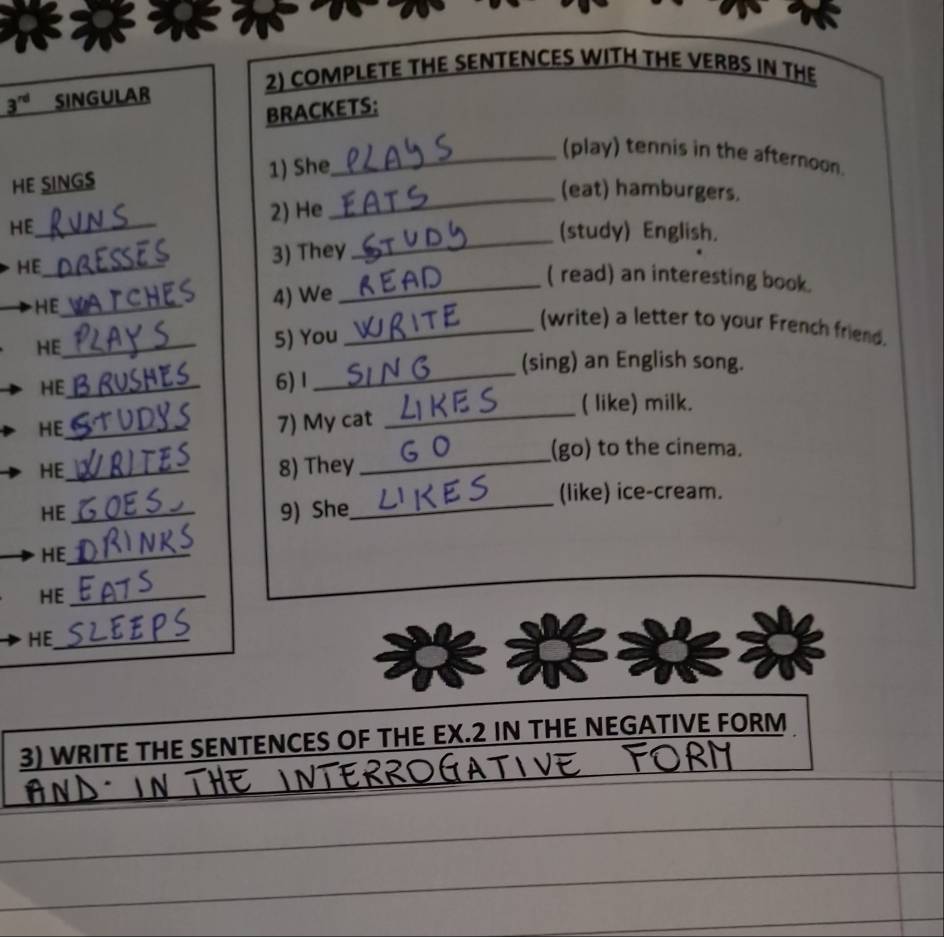 3rd SINGULAR
HE SINGS
HE RUNS
HE DRESSES
HE WATCHES
HE PLAYS
HE BRUSHES
HE STUDYS
HE WRITES
HE GOES
HE DRINKS
HE EATS
HE SLEEPS
2) COMPLETE THE SENTENCES WITH THE VERBS IN THE
BRACKETS:
1) She PLAYS (play) tennis in the afternoon.
2) He EATS (eat) hamburgers.
3) They STUDY (study) English.
4) We READ ( read) an interesting book.
5) You WRITE (write) a letter to your French friend.
6) I SING (sing) an English song.
7) My cat LIKES ( like) milk.
8) They GO (go) to the cinema.
9) She LIKES (like) ice-cream.
3) WRITE THE SENTENCES OF THE EX.2 IN THE NEGATIVE FORM
AND IN THE INTERROGATIVE FORM